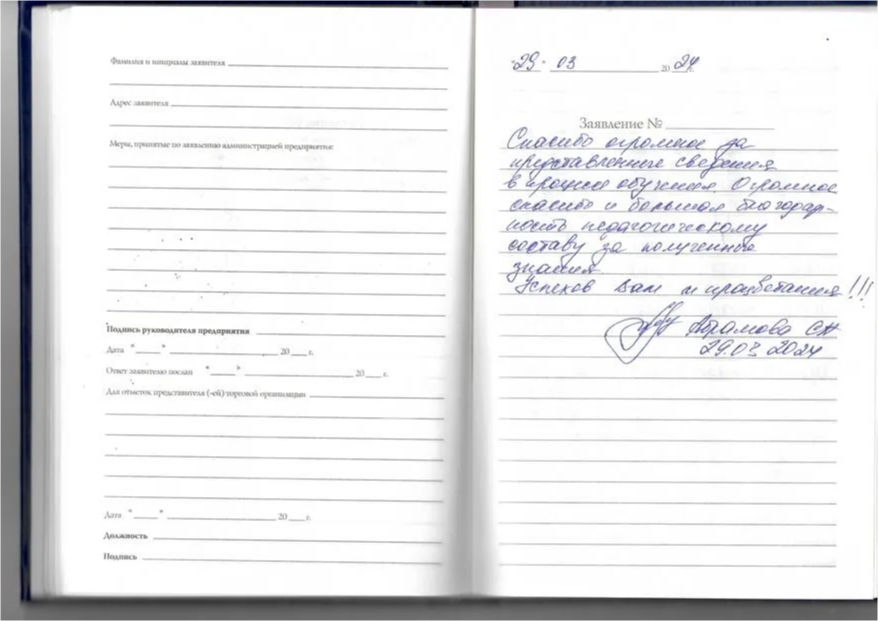 Фамилия и инициалы заявителя
Адрес заявителя
Меры, принятые по заявлению администрацией предприятия:
Подпись руководителя предприятия
Дата " " 20 г.
Ответ заявителю послан " " 20 г.
Для отметок представителя (-ей) торговой организации
Дата " " 20 г.
Должность
Подпись
"29" 03 2024
Заявление №
Спасибо огромное за
представленные сведения
в процессе обучения. Огромное
спасибо и большая благодар-
ность педагогическому
составу за полученные
знания.
Успехов Вам и процветания!!!
Абрамова СЖ
29.03.2024